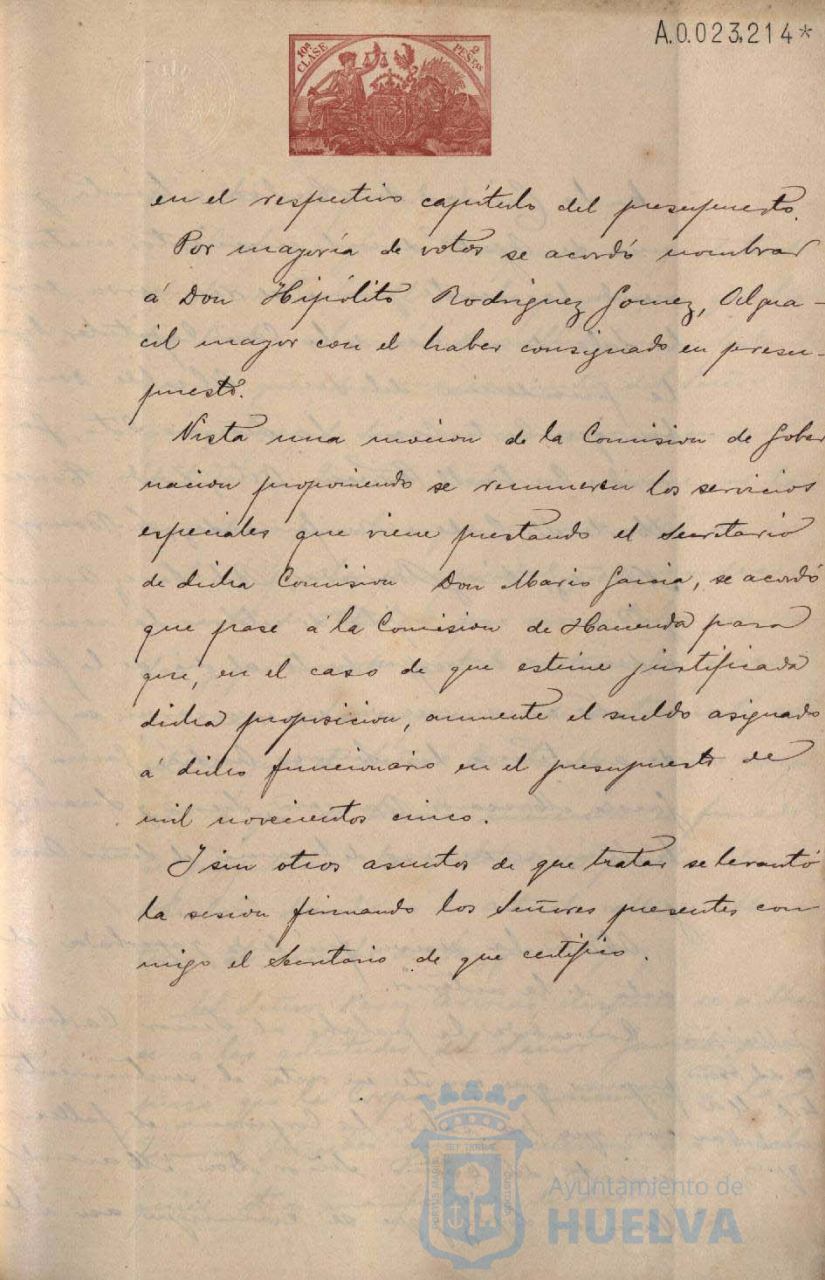 A.0.023,214*
10ª CLASE 2 PESTAS
en el respectivo capítulo del presupuesto.
Por mayoría de votos se acordó nombrar
á Don Hipólito Rodriguez Gomez, Algua-
cil mayor con el haber consignado en presu-
puesto.
Vista una mocion de la Comision de Gober
nacion proponiendo se remuneren los servicios
especiales que viene prestando el Secretario
de dicha Comision Don Mario Garcia, se acordó
que pase á la Comision de Hacienda para
que, en el caso de que estime justificada
dicha proposicion, aumente el sueldo asignado
á dicho funcionario en el presupuesto de
mil novecientos cinco.
Y sin otros asuntos de que tratar se levantó
la sesion firmando los Señores presentes con
migo el Secretario de que certifico.
Ayuntamiento de
HUELVA